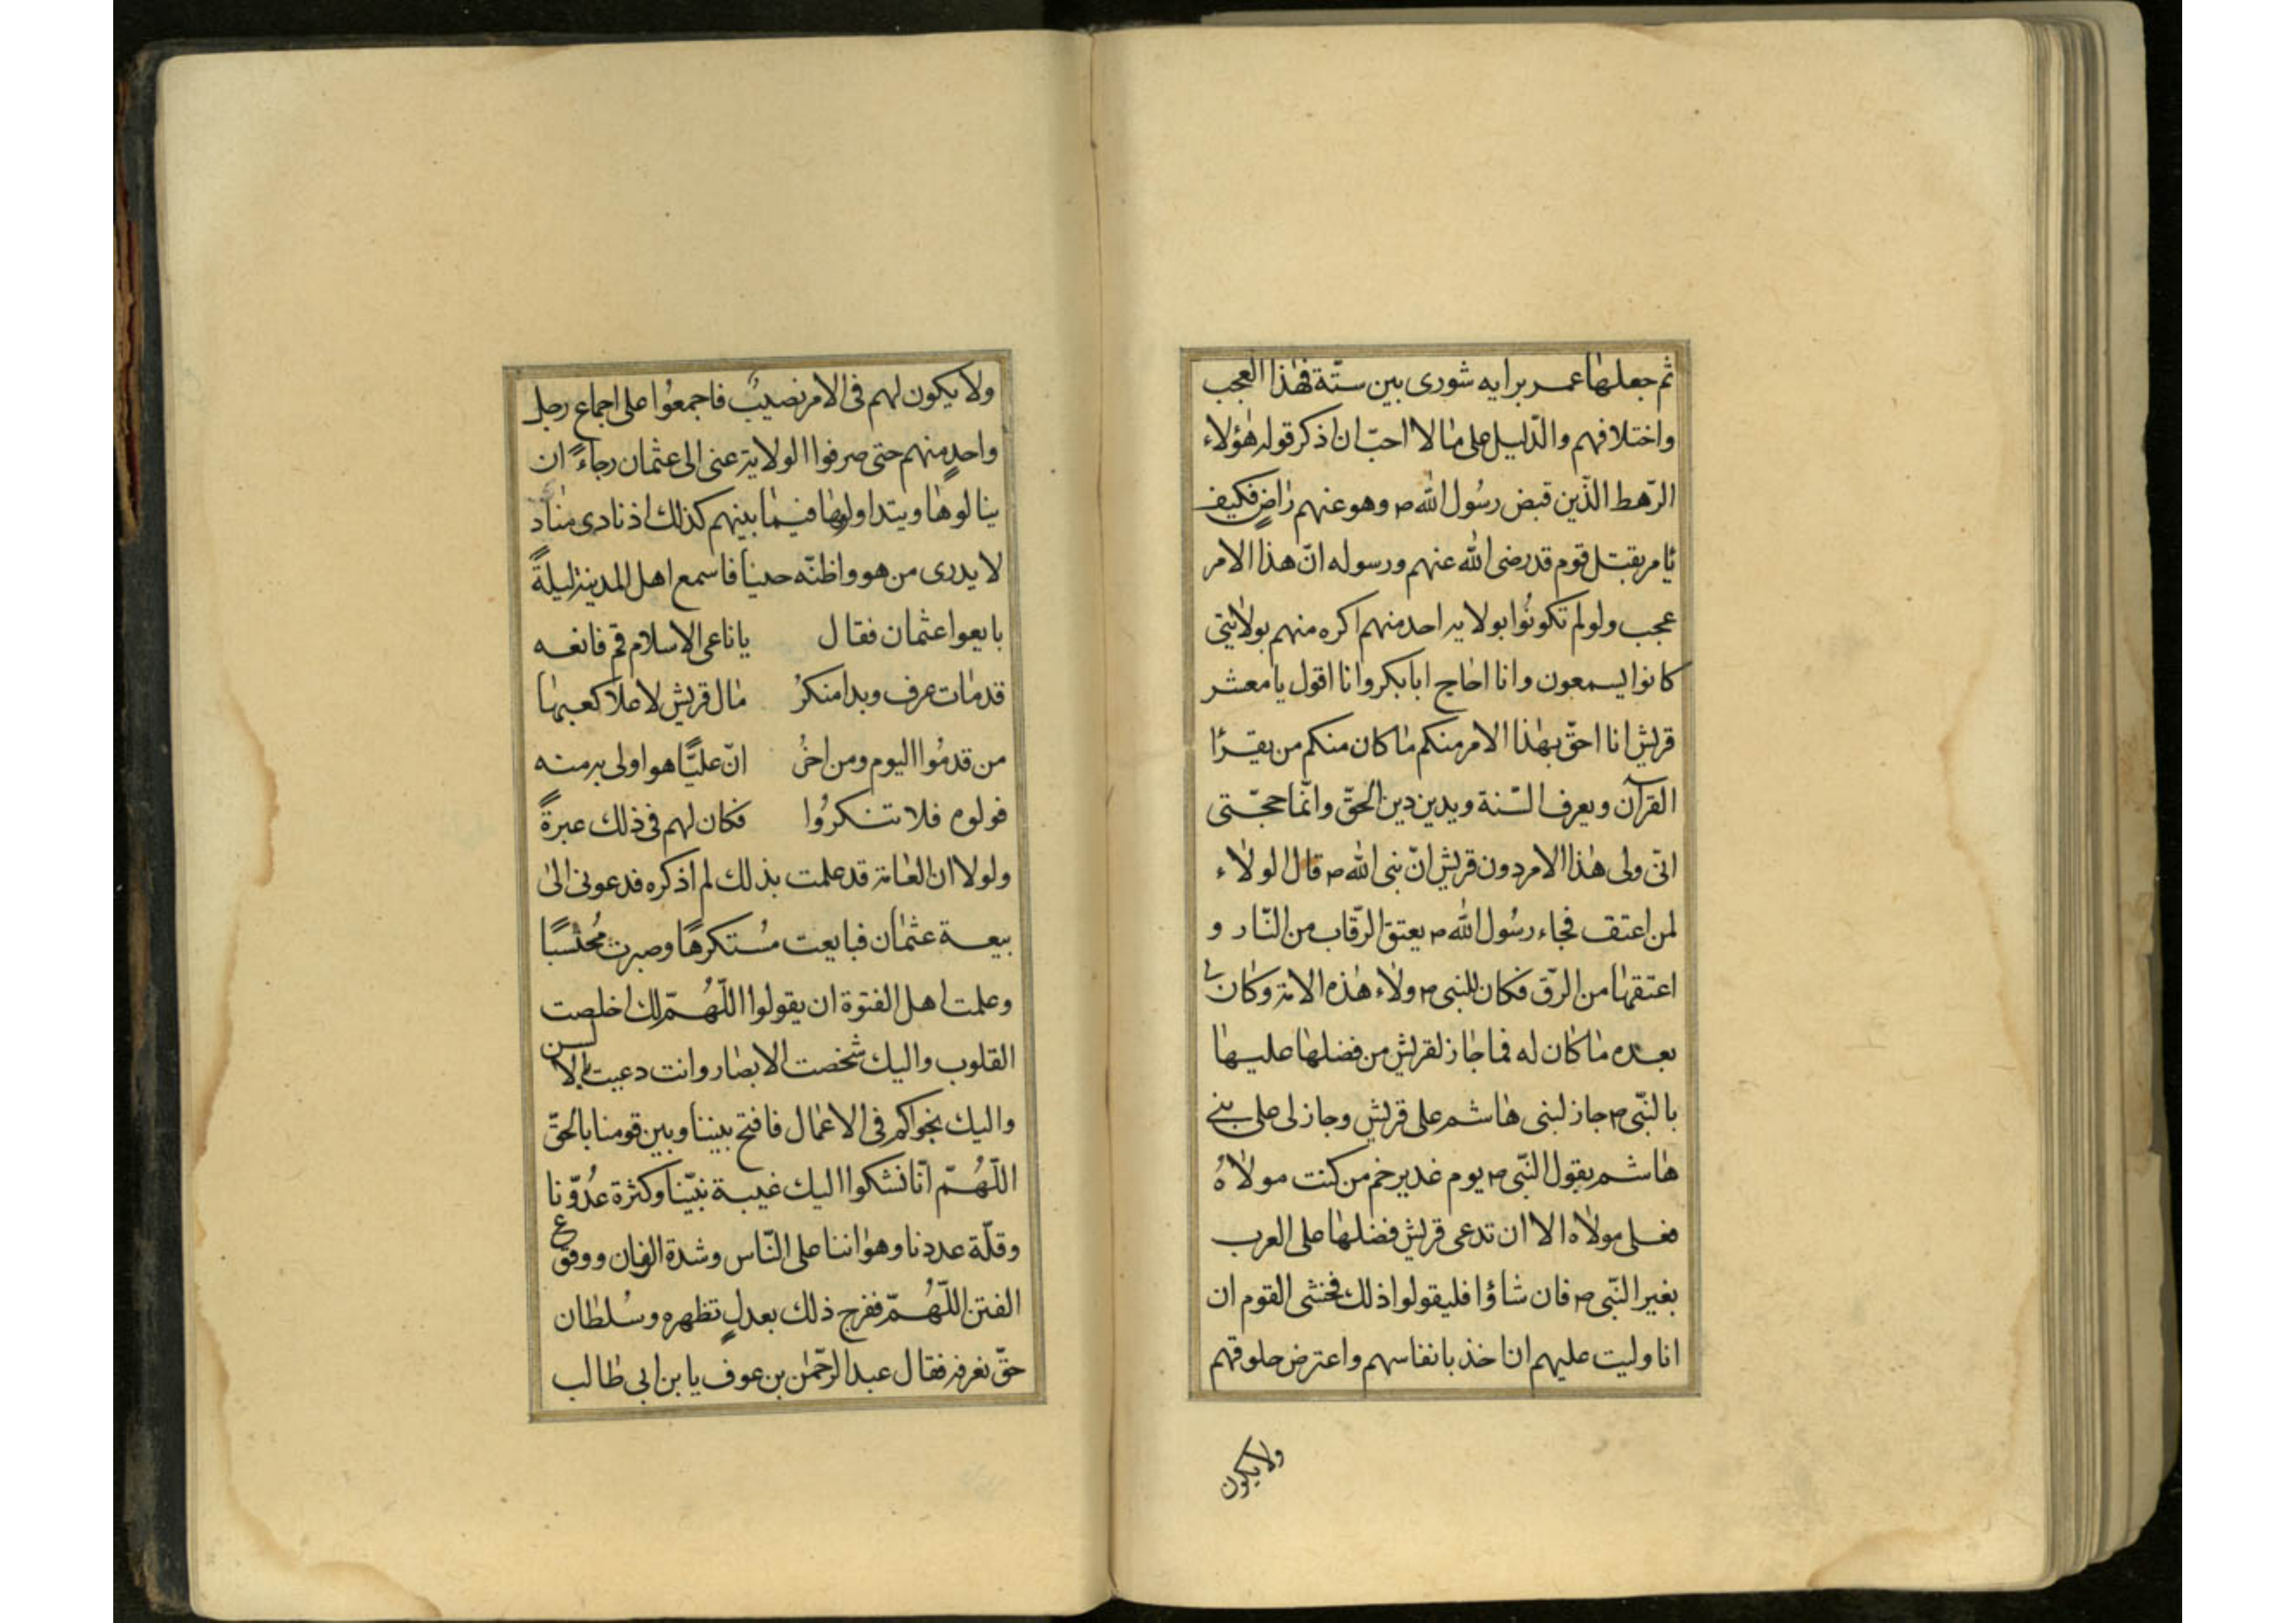 ثم جعلها عمر برايه شورى بين ستّة فهذا العجب
واختلافهم والدّليل على ما لا احبّ ان اذكر قوله هؤلاء
الرّهط الذّين قبض رسُول الله ص وهو عنهم راضٍ فكيف
يامر بقتل قوم قد رضى الله عنهم ورسوله انّ هذا الامر
عجب ولو لم تكونُوا بولايه احد منهم اكره منهم بولايتى
كانوا يسمعون وانا احاج ابابكر وانا اقول يا معشر
قريش انا احقّ بهذا الامر منكم ما كان منكم من يقرا
القرآن ويعرف السّنة ويدين دين الحقّ وانّما حجّتى
انّى ولى هذا الامر دون قريش انّ نبى الله ص قال الولاء
لمن اعتق فجاء رسُول الله ص يعتق الرّقاب من النّار و
اعتقها من الرّق فكان للنبى ص ولاء هذه الامة وكان لى
بعده ما كان له فما جاز لقريش من فضلها عليها
بالنّبى ص جاز لبنى هاشم على قريش وجاز لى على بنى
هاشم بقول النّبى ص يوم غدير خم من كنت مولاهُ
فعلى مولاه الا ان تدعى قريش فضلها على العرب
بغير النّبى ص فان شاؤا فليقولوا ذلك فخشى القوم ان
انا وليت عليهم ان اخذ بانفاسهم واعترض حلوقهم
ولا يكون
ولا يكون لهم فى الامر نصيبٌ فاجمعُوا على اجماع رجل
واحدٍ منهم حتى صرفوا الولاية عنى الى عثمان رجاءً ان
ينالوها ويتداولوها فيما بينهم كذلك اذ نادى مناد
لا يدرى من هو واظنّه جنيا فاسمع اهل المدينة ليلةً
بايعوا عثمان فقال يا ناعى الاسلام قم فانعه
قد مات عرف وبدا منكرُ مال قريش لا علا كعبها
من قدمُوا اليوم ومن اخرُ انّ عليًّا هو اولى به منه
فولوه فلا تنكرُوا فكان لهم فى ذلك عبرةً
ولولا ان العامة قد علمت بذلك لم اذكره فدعونى الى
بيعة عثمان فبايعت مُستكرهًا وصبرت مُحتسبًا
وعلمت اهل الفتوة ان يقولوا اللّهُمّ لك اخلصت
القلوب واليك شخصت الابصار وانت دعيت بالالسن
واليك نجواكم فى الاعمال فافتح بيننا وبين قومنا بالحقّ
اللّهُمّ انّا نشكوا اليك غيبة نبيّنا وكثرة عدُوّنا
وقلّة عددنا وهواننا على النّاس وشدة الزمان ووقوع
الفتن اللّهُمّ ففرج ذلك بعدلٍ تظهره وسُلطان
حقّ نعرفه فقال عبد الرّحمن بن عوف يا بن ابى طالب